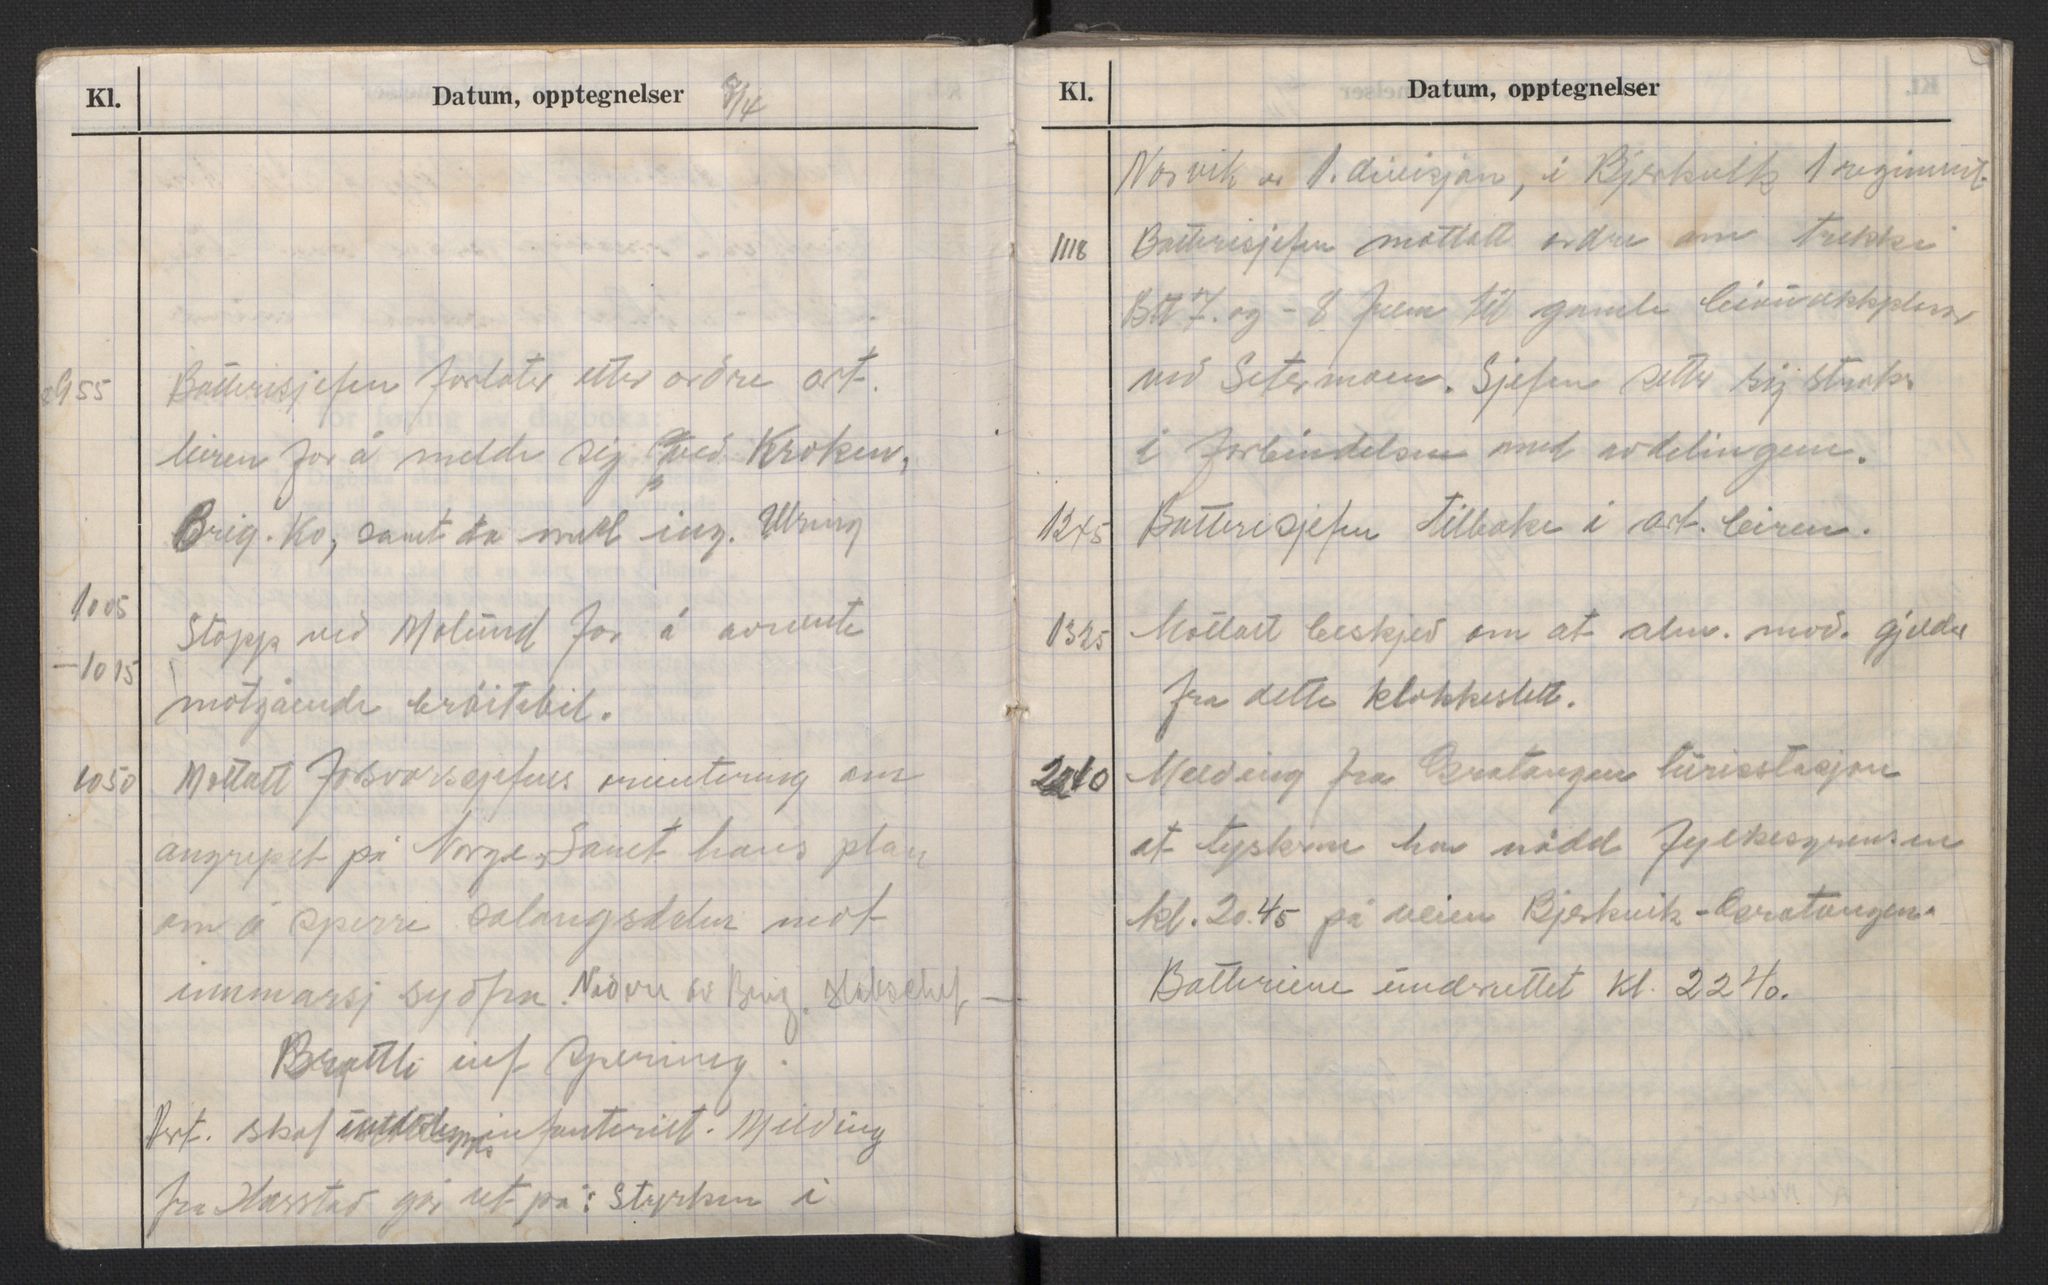 Kl. Datum, opptegnelser 9/4
0955 Batterisjefen forlater etter ordre art.
leiren for å melde sig ved Kroken,
Brig. Ko, samt ta med ing.
1005 - 1015 Stopp ved Molund for å avvente
møtgående brøitebil.
1050 Mottatt Forsvarssjefens orientering om
angrepet på Norge, Samt hans plan
om å sperre Salangsdalen mot
innmarsj sydfra. av Brig.
Brattli inf sperring.
Art. skal infanteriet. Melding
fra Harstad går ut på: Styrken i
Kl. Datum, opptegnelser
Narvik er 1. divisjon, i Bjerkvik 1 regiment.
1118 Batterisjefen mottatt ordre om trekke
Batt 7. og - 8 frem til gamle bivuakkplasser
ved Setermoen. Sjefen setter sig straks
i forbindelse med avdelingene.
1245 Batterisjefen tilbake i art. leiren.
1325 Mottatt beskjed om at alm. mob. gjelder
fra dette klokkeslett.
2210 Melding fra Gratangen turiststasjon
at tyskerne har nådd fylkesgrensen
kl. 20.45 på veien Bjerkvik - Gratangen.
Batteriene underrettet kl. 2240.